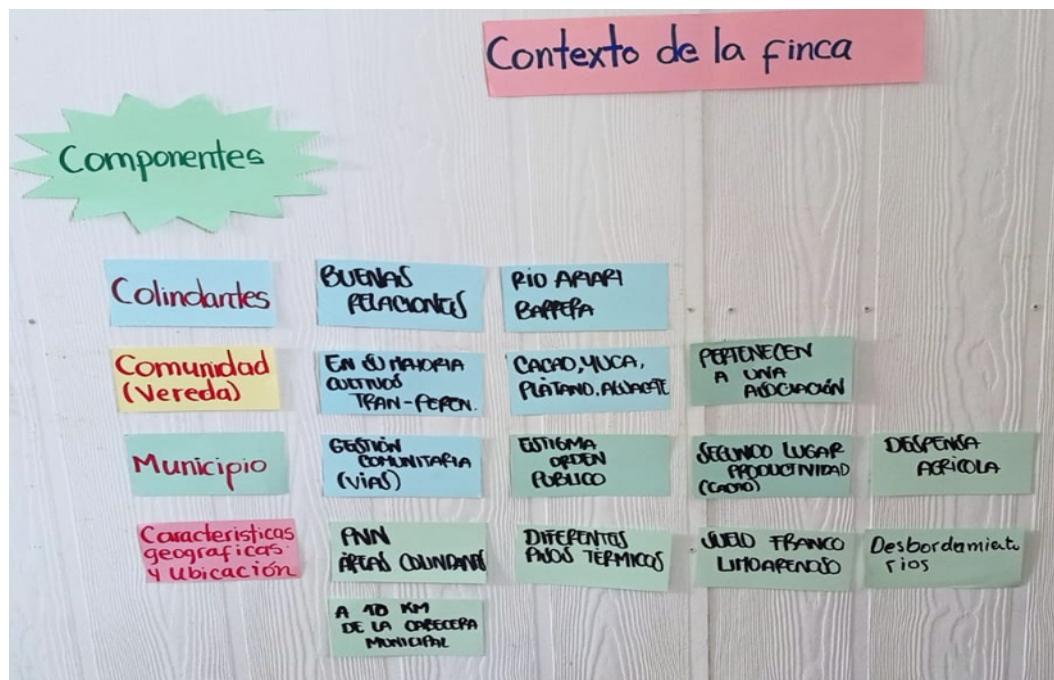 Contexto de la finca
Componentes
Colindantes
BUENAS
RELACIONES
RIO ARIARI
BARRERA
Comunidad
(Vereda)
EN SU MAYORIA
CULTIVOS
TRAN-PEREN.
CACAO, YUCA,
PLÁTANO, AGUACATE
PERTENECEN
A UNA
ASOCIACIÓN
Municipio
GESTIÓN
COMUNITARIA
(VIAS)
ESTIGMA
ORDEN
PUBLICO
SEGUNDO LUGAR
PRODUCTIVIDAD
(CACAO)
DESPENSA
AGRÍCOLA
Caracteristicas
geograficas
y Ubicación
PNN
ÁREAS COLINDANTES
DIFERENTES
PISOS TÉRMICOS
SUELO FRANCO
LIMOARENOSO
Desbordamiento
rios
A 10 KM
DE LA CABECERA
MUNICIPAL